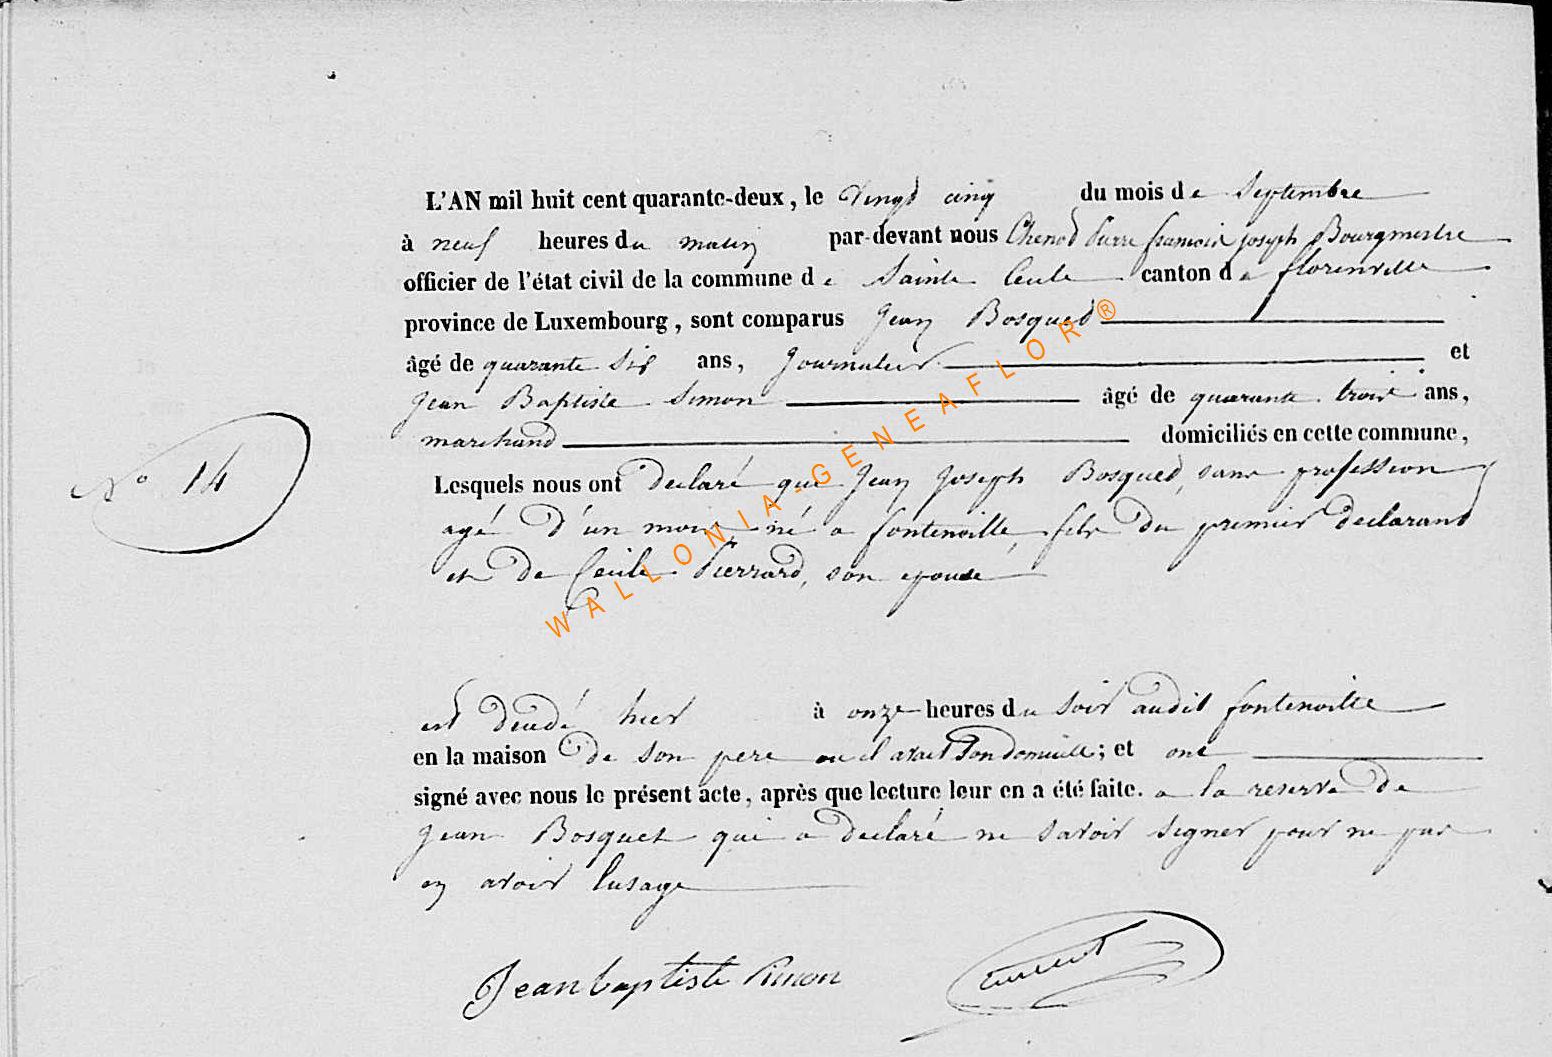 L'AN mil huit cent quarante-deux, le vingt cinq du mois de Septembre
à neuf heures du matin par-devant nous Chenot Pierre francois joseph Bourgmestre
officier de l'état civil de la commune de Sainte Cecile canton de florenville
province de Luxembourg, sont comparus Jean Bosquet
âgé de quarante six ans, Journalier et
Jean Baptiste Simon âgé de quarante trois ans,
marchand domiciliés en cette commune,
N° 14
Lesquels nous ont declaré que Jean Joseph Bosquet, sans profession
agé d'un mois, né a fontenoille, fils du premier declarant
et de Cecile Pierrard, son epouse
est decedé hier à onze heures du soir audit fontenoille
en la maison de son pere ou il avait son domicile; et ont
signé avec nous le présent acte, après que lecture leur en a été faite. a la reserve de
Jean Bosquet qui a declaré ne savoir signer pour ne pas
en avoir lusage
Jean baptiste Simon
WALLONIA-GENEAFLOR®